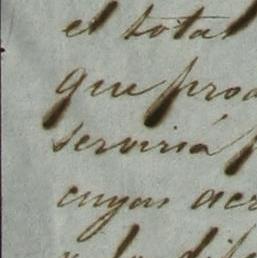 el total
que prod
servirá p
cuyas acr